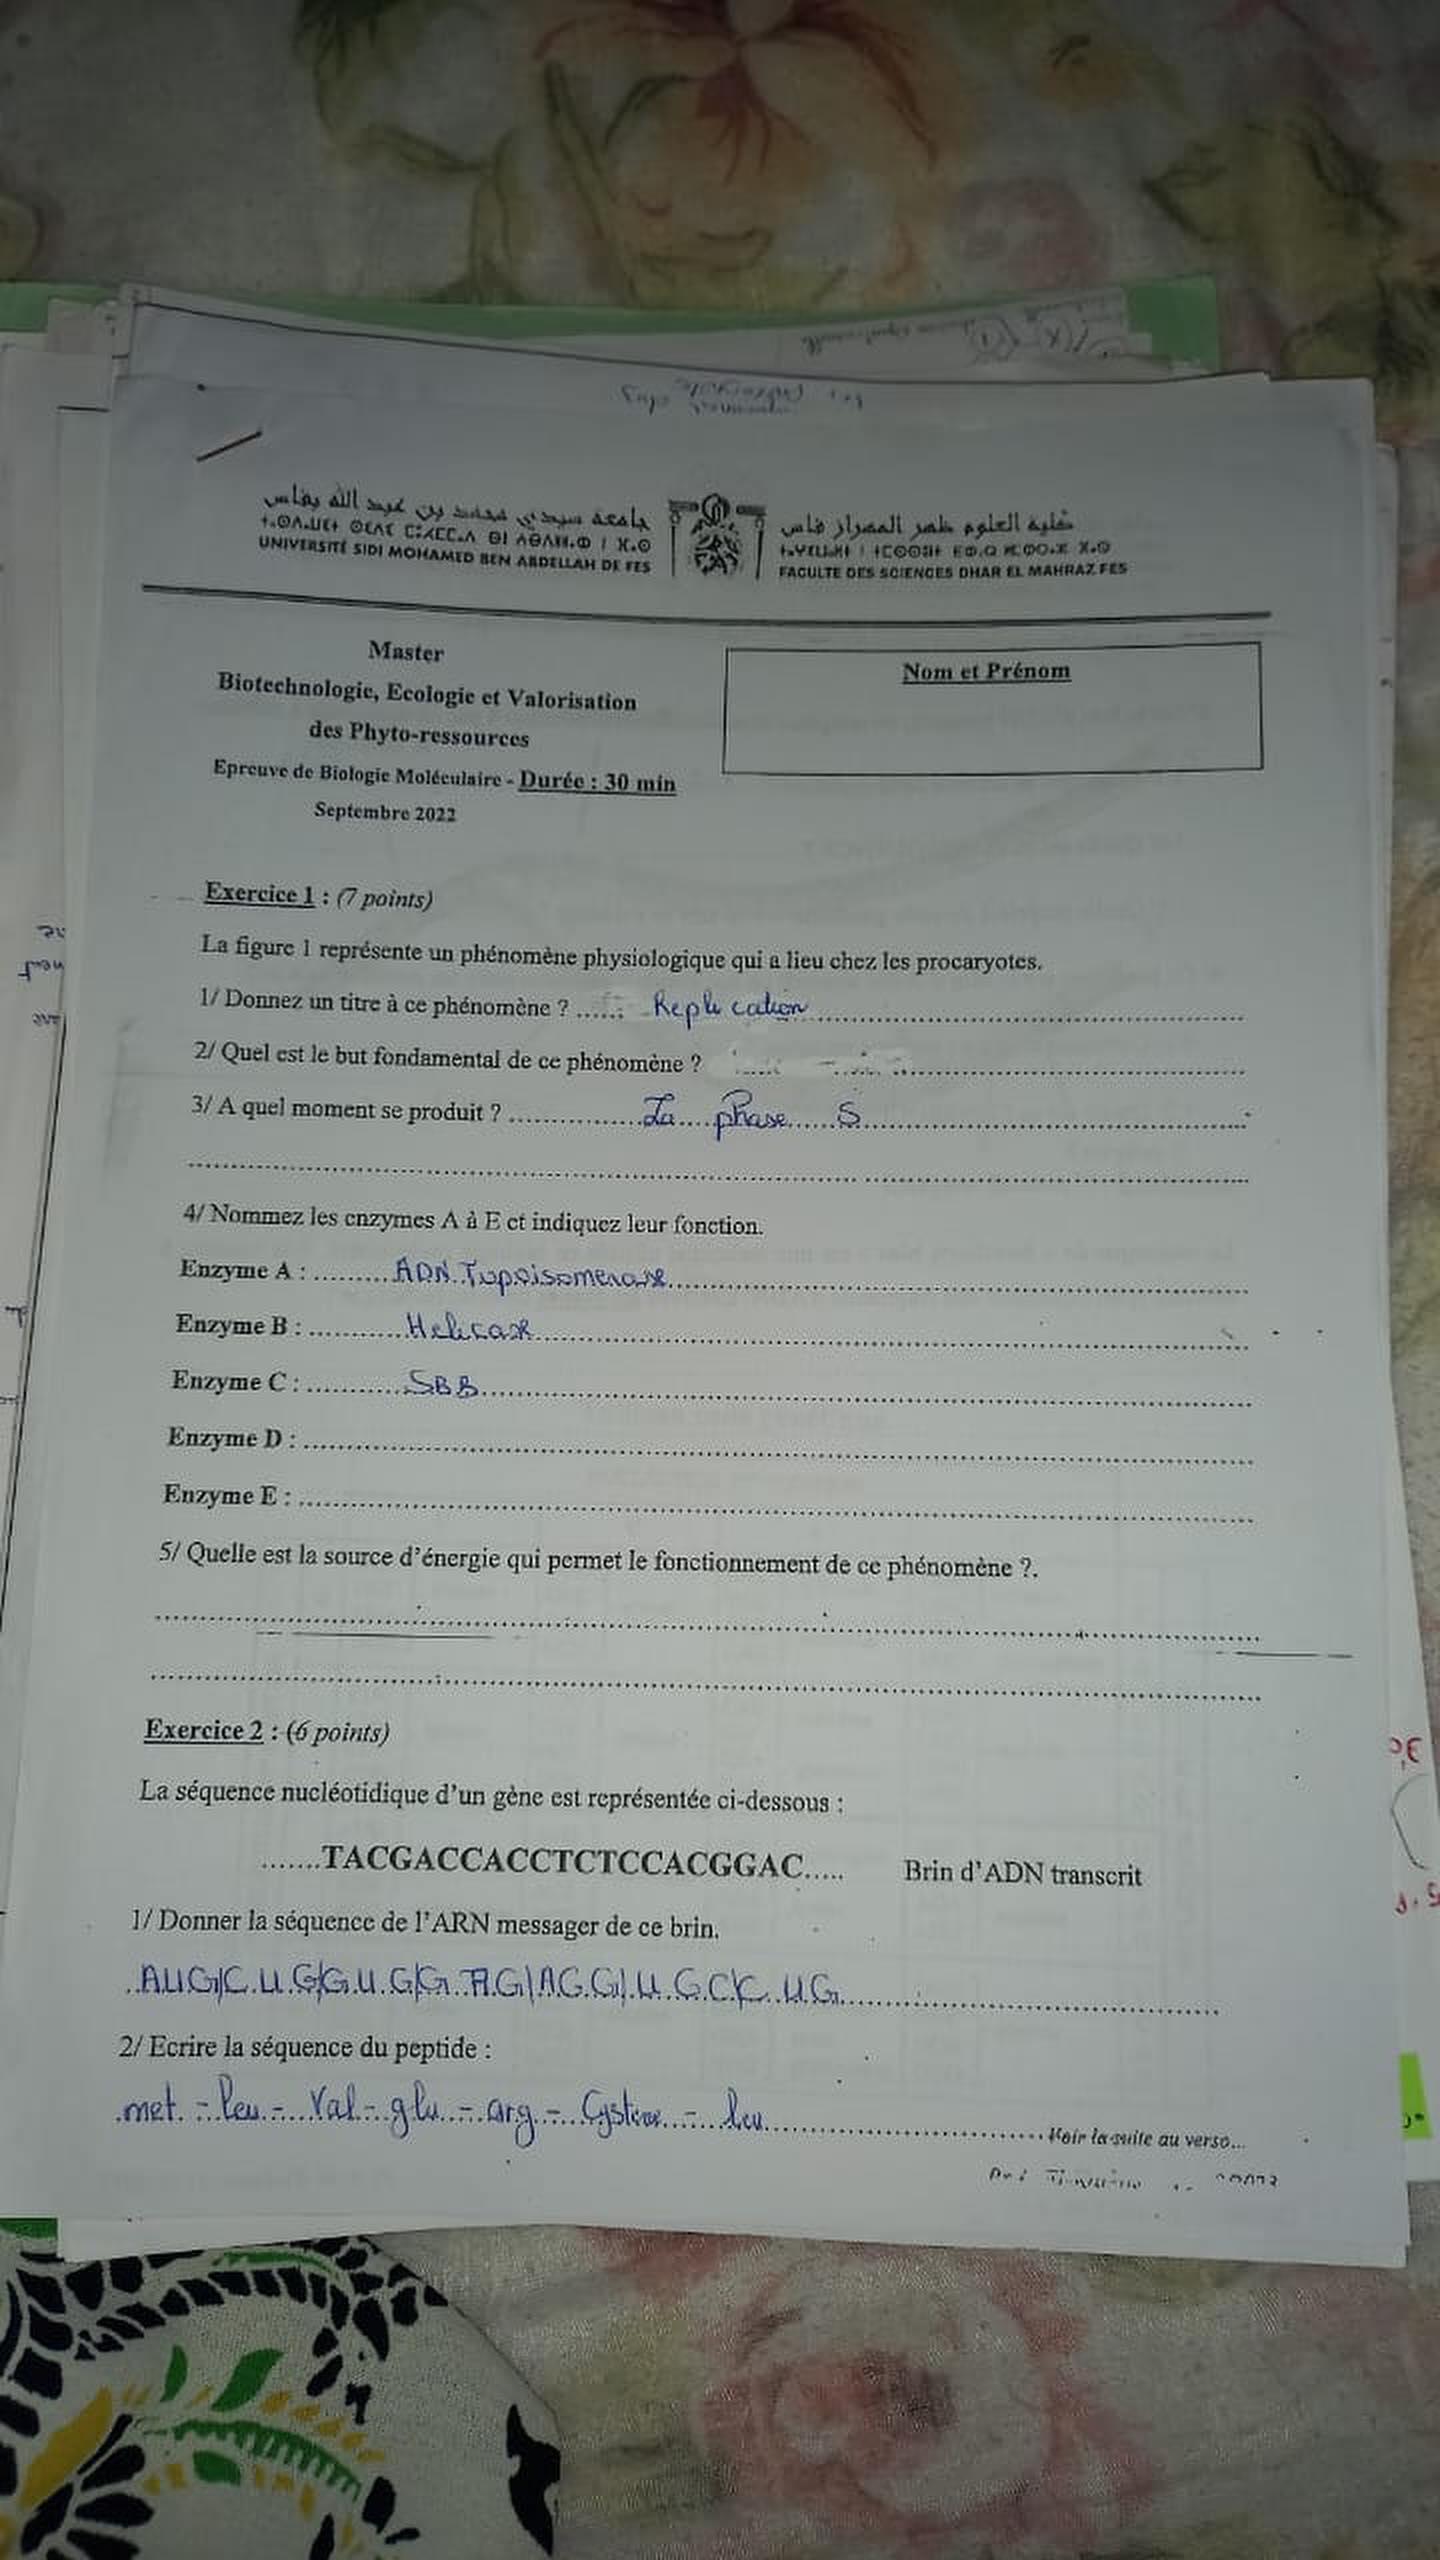 جامعة سيدي محمد بن عبد الله بفاس
UNIVERSITÉ SIDI MOHAMED BEN ABDELLAH DE FES
كلية العلوم ظهر المهراز فاس
FACULTE DES SCIENCES DHAR EL MAHRAZ FES
Master
Biotechnologie, Ecologie et Valorisation
des Phyto-ressources
Epreuve de Biologie Moléculaire - Durée : 30 min
Septembre 2022
Nom et Prénom
Exercice 1 : (7 points)
La figure 1 représente un phénomène physiologique qui a lieu chez les procaryotes.
1/ Donnez un titre à ce phénomène ? ...... Replication ......
2/ Quel est le but fondamental de ce phénomène ? ......
3/ A quel moment se produit ? ...... La phase S ......
4/ Nommez les enzymes A à E et indiquez leur fonction.
Enzyme A : ...... ADN Topoisomerase ......
Enzyme B : ...... Helicase ......
Enzyme C : ...... SBB ......
Enzyme D : ......
Enzyme E : ......
5/ Quelle est la source d'énergie qui permet le fonctionnement de ce phénomène ?.
Exercice 2 : (6 points)
La séquence nucléotidique d'un gène est représentée ci-dessous :
.......TACGACCACCTCTCCACGGAC..... Brin d'ADN transcrit
1/ Donner la séquence de l'ARN messager de ce brin.
AUG|CUG|GUG|GAG|AGG|UGC|CUG
2/ Ecrire la séquence du peptide :
met - leu - Val - glu - arg - Cysteine - leu ...... Voir la suite au verso...